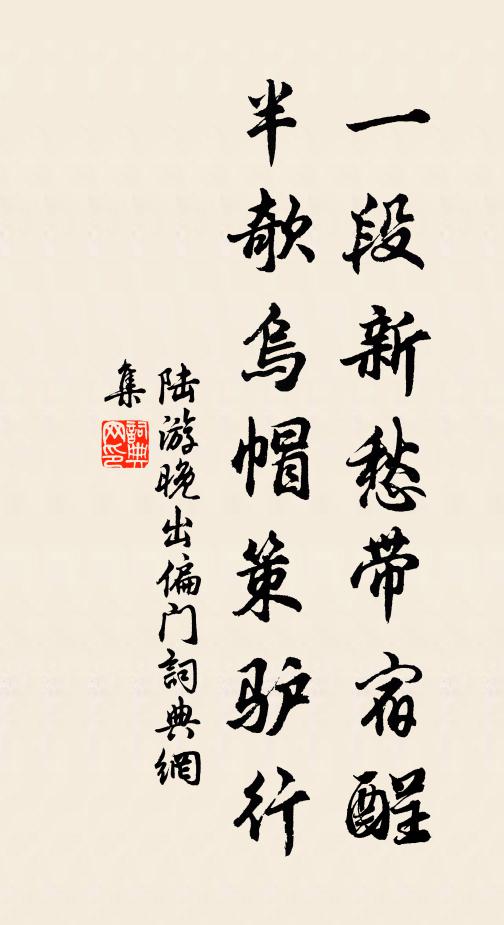 一段新愁带宿酲
半欹乌帽策驴行
陆游晚出偏门詞典網
集
詞典网印